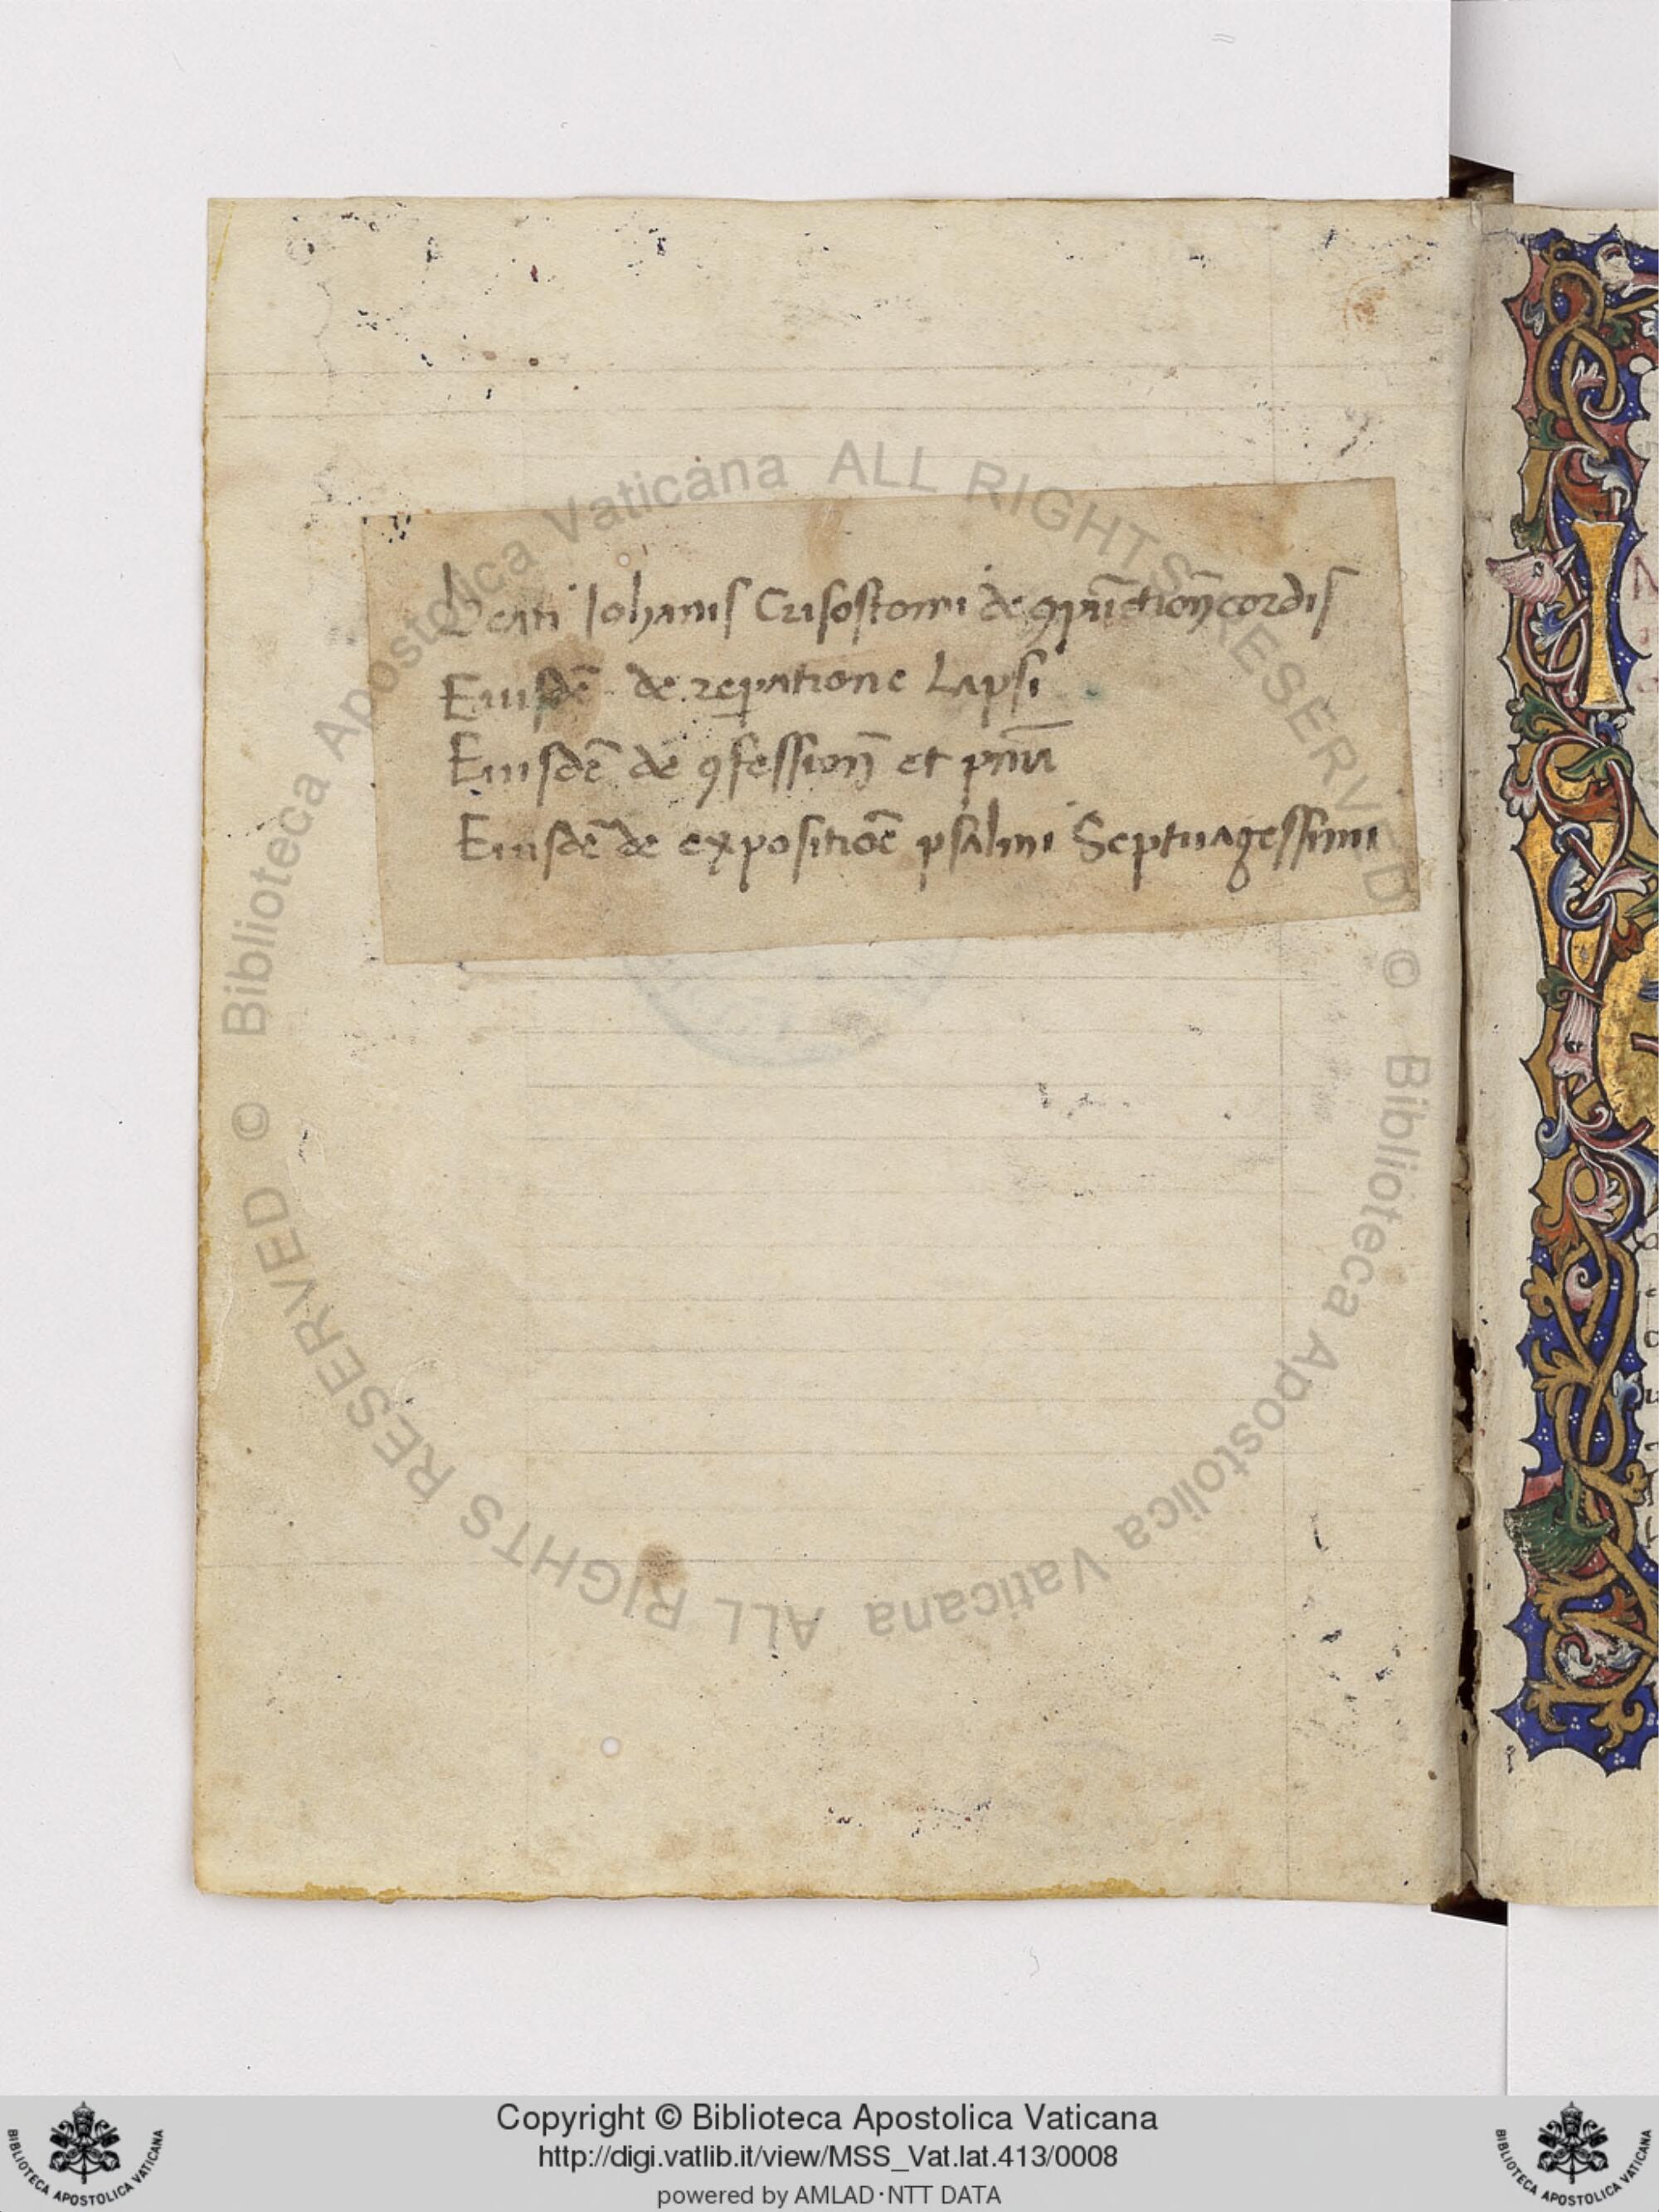 Beati Iohanis Crisostomi de ꝯpũctioñ cordis
Eiusdẽ de reꝑatione lapsi
Eiusdẽ de ꝯfessioñ et pnĩa
Eiusdẽ de expositiõe psalmi Septuagessimi
© Biblioteca Apostolica Vaticana ALL RIGHTS RESERVED
© Biblioteca Apostolica Vaticana ALL RIGHTS RESERVED
Copyright © Biblioteca Apostolica Vaticana
http://digi.vatlib.it/view/MSS_Vat.lat.413/0008
powered by AMLAD·NTT DATA
BIBLIOTECA APOSTOLICA VATICANA
BIBLIOTECA APOSTOLICA VATICANA